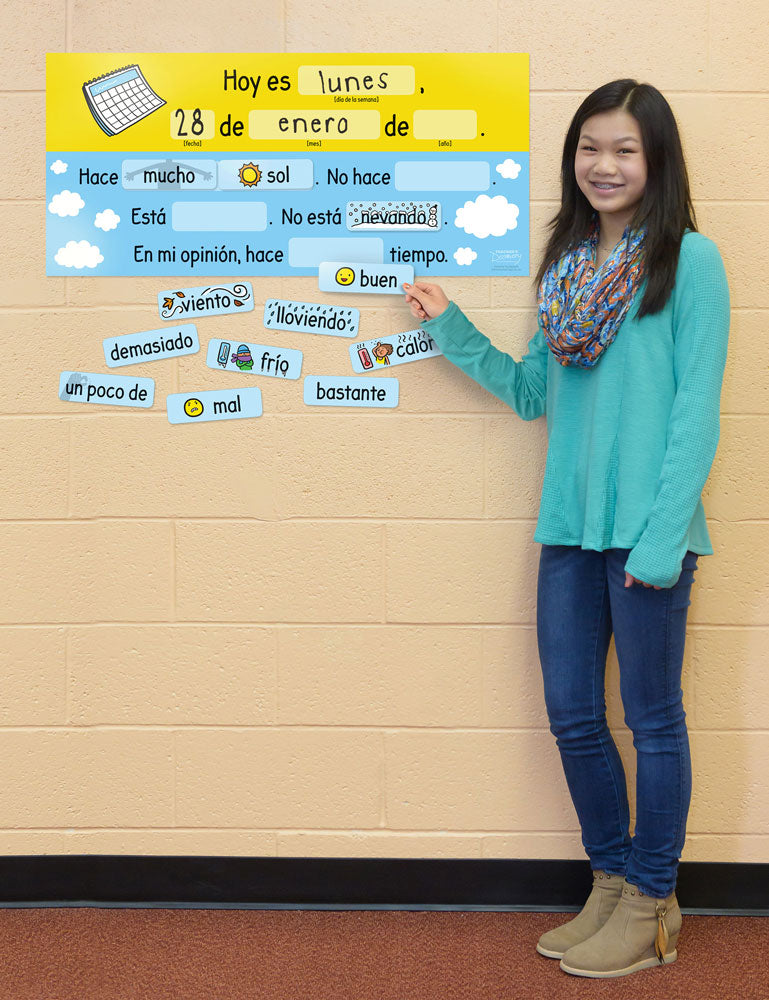 Hoy es lunes,
[día de la semana]
28 de enero de .
[fecha] [mes] [año]
Hace mucho sol. No hace .
Está . No está nevando.
En mi opinión, hace tiempo.
TEACHER'S
Discovery
buen
viento
lloviendo
demasiado
frío
calor
un poco de
mal
bastante